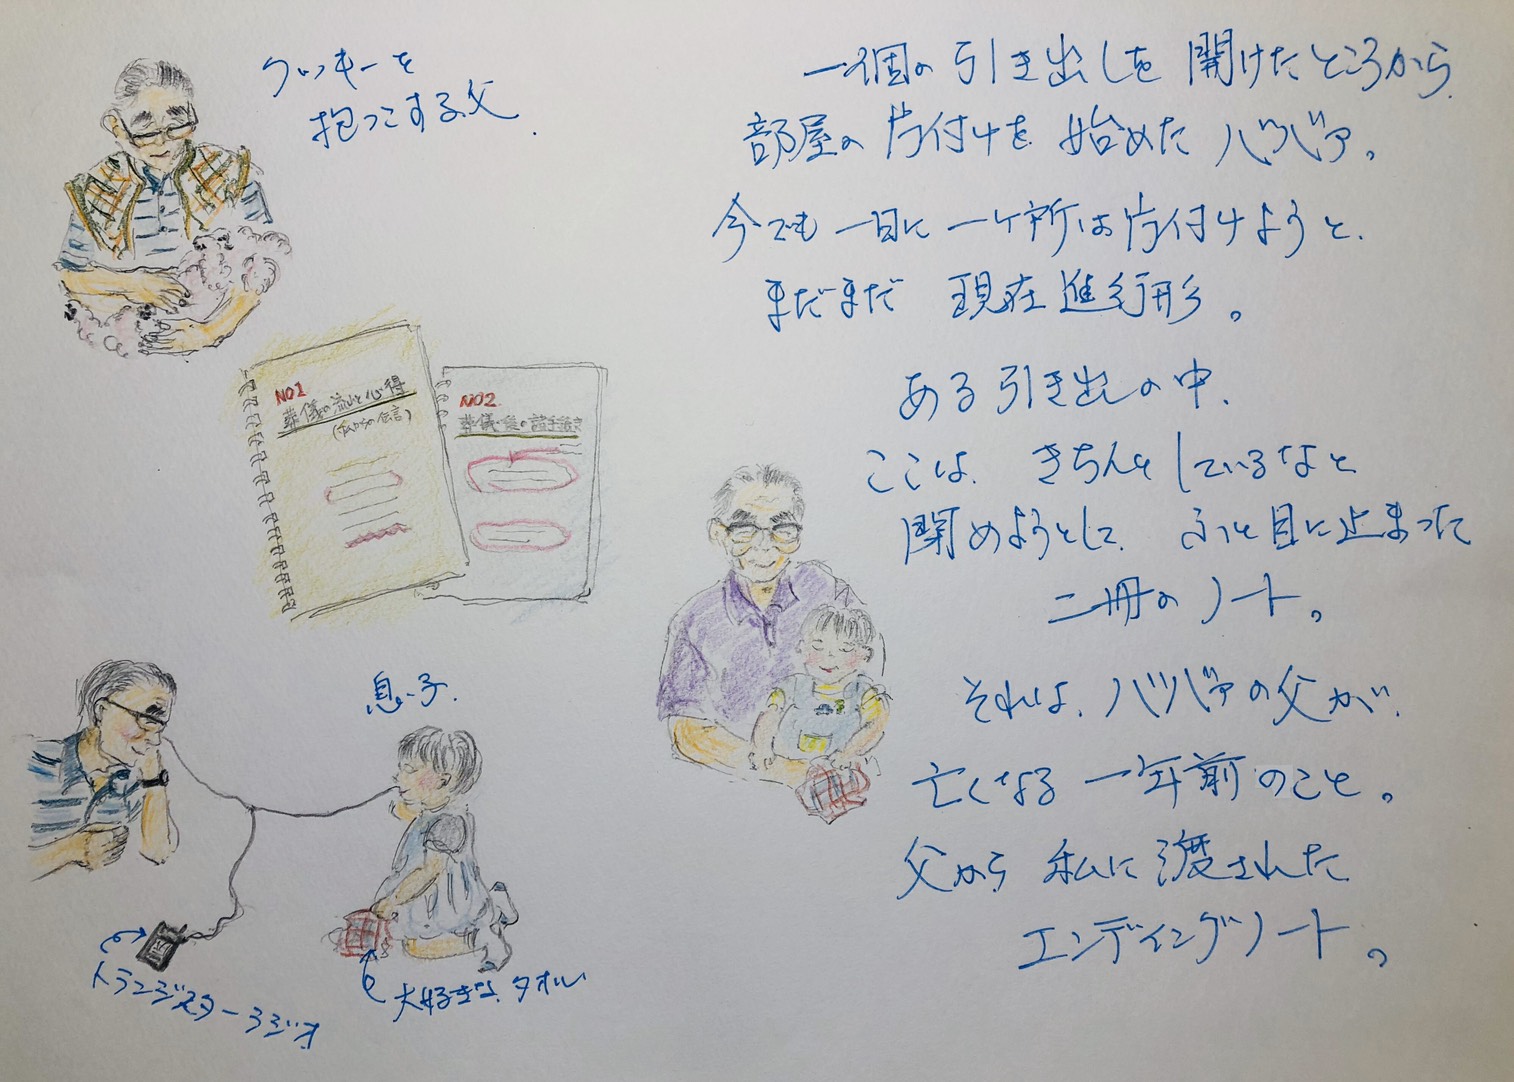 クッキーを
抱っこする父.
一個の引き出しを開けたところから
部屋の片付けを始めたバツバァ。
今でも一日に一ケ所は片付けようと、
まだまだ現在進行形。
ある引き出しの中、
ここは、きちんとしているなと
閉めようとして、ふと目に止まった
二冊のノート。
それは、バツバァの父が、
亡くなる一年前のこと。
父から私に渡された
エンディングノート。
NO1
葬儀の流れと心得
(私からの伝言)
NO2
葬儀後の諸手続き
息子.
トランジスターラジオ
大好きなタオル